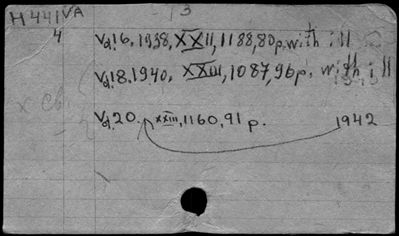 H 441 VA 13
4 Vol.16. 1938, XXII, 1188, 80 p. with ill
Vol.18. 1940, XXIII, 1087, 96 p. with ill
Vol.20. XXIII, 1160, 91 p. 1942